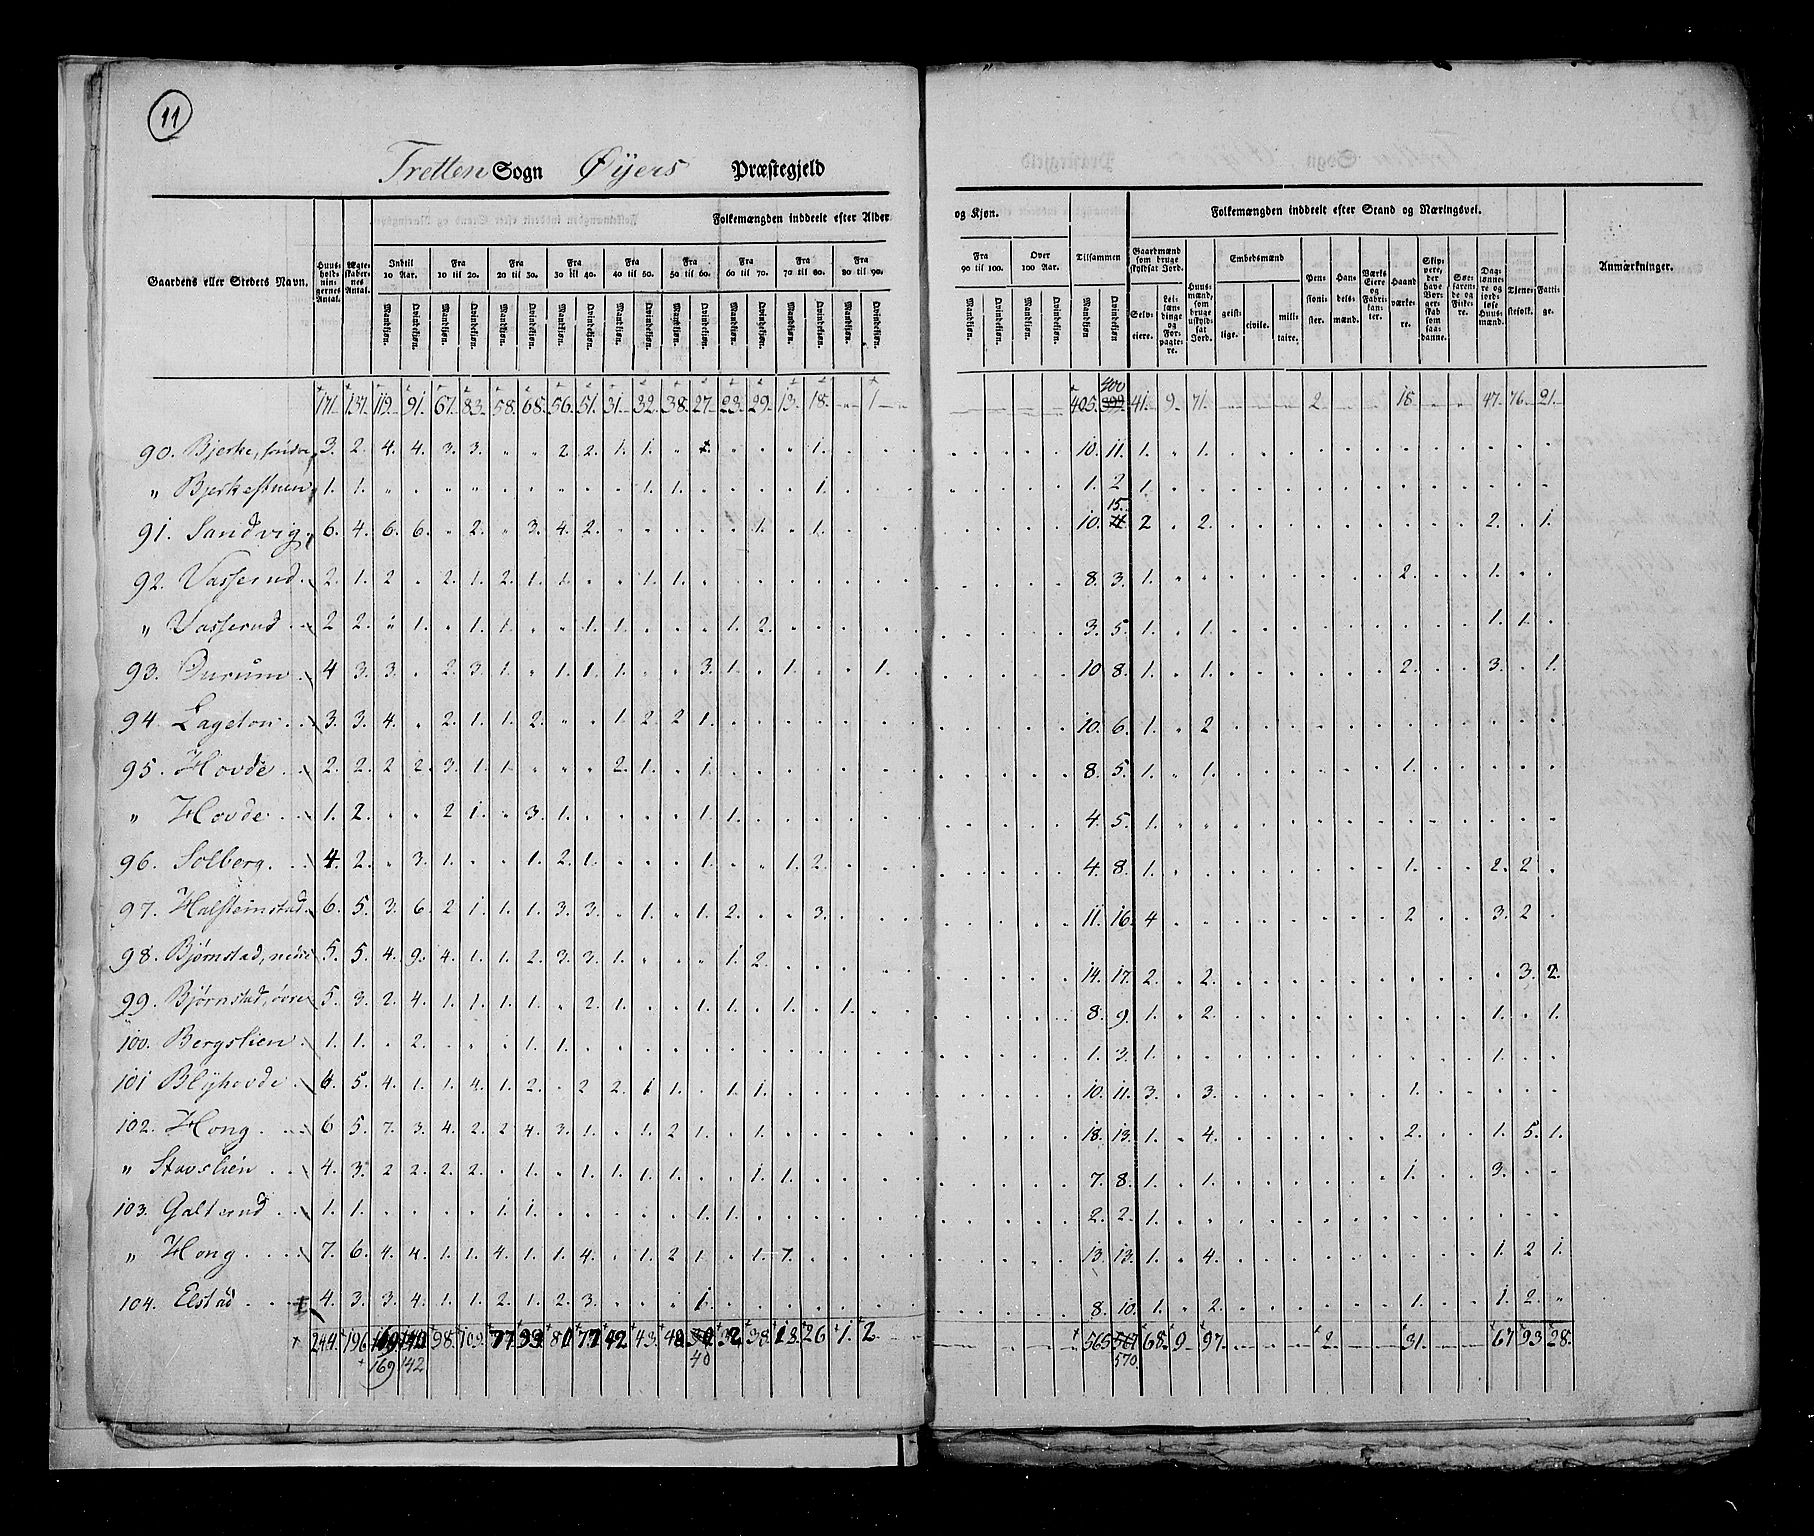 11
Tretten Sogn Øÿers Præstegjeld
Folkemængden inddeelt efter Alder og Kjøn. Folkemængden inddeelt efter Stand og Næringsvei.
Gaardens eller Stedets Navn. Huusholdningernes Antal. Ægteskabernes Antal. Indtil 10 Aar. Fra 10 til 20. Fra 20 til 30. Fra 30 til 40. Fra 40 til 50. Fra 50 til 60. Fra 60 til 70. Fra 70 til 80. Fra 80 til 90. Fra 90 til 100. Over 100 Aar. Tilsammen Gaardmænd som bruge skyldsat Jord. Huusmænd, som bruge uskyldsat Jord. Embedsmænd Pensionister. Handelsmænd. Værkseiere og Fabrikanter. Haandværkere. Skippere, der have Borgerskab som saadanne. Søefarende og Fiskere. Dagleiere og jordløse Huusmænd. Tjenestefolk. Fattige. Anmærkninger.
Mandkjøn. Qvindekjøn. Mandkjøn. Qvindekjøn. Mandkjøn. Qvindekjøn. Mandkjøn. Qvindekjøn. Mandkjøn. Qvindekjøn. Mandkjøn. Qvindekjøn. Mandkjøn. Qvindekjøn. Mandkjøn. Qvindekjøn. Mandkjøn. Qvindekjøn. Mandkjøn. Qvindekjøn. Mandkjøn. Qvindekjøn. Mandkjøn Qvindekjøn. Selveiere. Leilændinge og Forpagtere. geistlige. civile. militaire.
171. 137. 119. 91. 67. 83. 58. 68. 56. 51. 31. 32. 38. 27. 23. 29. 13. 18. „ 1 405. 399 400 41. 9. 71. 2. 18 47. 76. 21.
90. Bjerke, søndre 3. 2. 4. 4. 3. 3. „ „ 2. 2. 1. 1. „ 1. „ „ „ 1. 10. 11. 1. „ 1.
„ Bjerkestuen 1. 1. „ „ „ „ „ „ „ „ „ 1. 1. „ „ „ „ 1. 1. 2 1.
91. Sandvig, 6. 4. 6. 6. „ 2. „ 3. 4. 2. „ „ „ „ „ 1. „ 1. 10. 15. 2 „ 2. 2. „ 1.
92. Vasserud. 2. 1. 2 „ 2. 1. 2. 1. 1. „ „ 1. 1. 8. 3. 1. 2. 1.
„ Vasserud 2 2. „ 1. „ 1. 1. „ „ 1. 1. „ „ „ 1. 2. 3. 5. 1. „ 1. 1. 1.
93. Ourum 4 3. 3. „ 2. 3. 1. „ 1. 1. 1. „ „ 3. 1. „ 1. „ „ 1. 10 8. 1. „ 1. 2. 3. „ 1.
94. Lageton 3. 3. 4. „ 2. 1. 1. 2. „ „ 1. 2. 2 1. 10. 6. 1. „ 2
95. Hovde 2. 2. 2 2. 3. 1. 1. „ „ „ 2. 1. „ 1. 8. 5. 1. „ 1. 1.
„ Hovde 1. 2. „ „ 2 1. „ 3. 1. „ „ „ „ 1. 1. 4. 5. 1.
96. Solberg. 4. 2. „ 3. 1. „ „ 1. 2. 1. „ „ „ 1. „ „ 1. 2. 4. 8. 1. 1. 2. 2
97. Halsteinstad. 6. 5. 3. 6. 2 1. 1. 1. 3. 3. „ 1. „ 1. 2. „ „ 3. 11. 16. 4 2 3. 2
98. Bjørnstad, nedre 5. 5. 4. 9. 4. 1. 1. 2. 3. 3. 1. „ „ „ 1. 2. 14. 17. 2. „ 2. 3. 2
99. Bjørnstad, øvre 5. 3. 2. 4. 1. 1. 1. 1. „ 2. 1. „ „ 1. 1. „ 1. „ 1. 8. 9. 1. „ 2. 1. „ 1.
100. Bergslien 1. 1. „ 2. „ „ „ 1. 1. 1. 3. 1. 1.
101 Blÿhovde 6. 5. 4. 1. 1. 4. 1. 2. „ 2 2. 1 1. „ 1. 1. 10. 11. 3. „ 3. 1.
102. Hong 6 5. 7. 3. 4. 2. 2 4. 3. 1. „ 1. 2 1. „ 1. 18. 13. 1. „ 4. 2. 1. 5. 1.
„ Stavslien 4. 3. 2 2. 2. 2. „ 1. „ 1. 1. 1. 1. „ „ 1. 1. 7. 8. 1. „ 1. 1. 3.
103. Galterud 1. 1. „ „ „ „ 1. 1. „ „ „ „ „ 1. 1. 2. 2. 1.
„ Hong 7. 6. 4. 4. 1. 1. 4. 1. 1. 4. „ 1. 2 1. „ 1. 1. 13. 13. 1. „ 4. 1. 2 1.
104. Elstad 4. 3. 3. 4. 1. 1. 2. 1. 2. 3. „ „ „ 1. 8. 10. 1. „ 2. 1. 1. 2. „
244. 196. 98. 109. 77 93 80 77 42 43. 48 32 38. 18. 26 1. 2 565 68. 9 97. 2. 31. 67 93 28.
169 142 40 570.